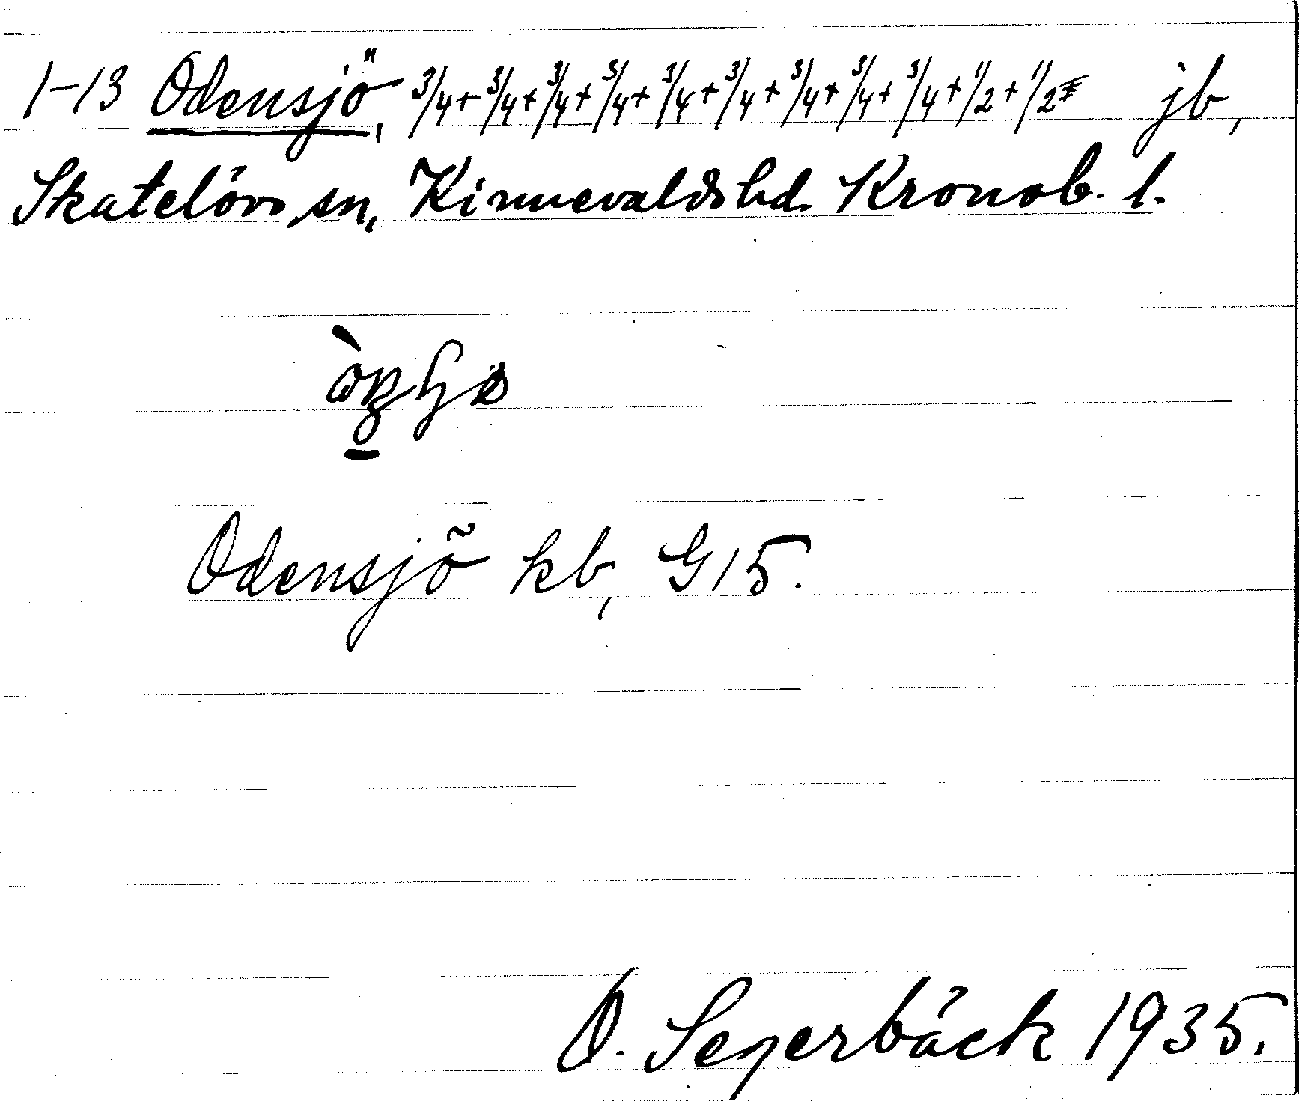 1-13 Odensjö, 3/4+3/4+3/4+3/4+3/4+3/4+3/4+3/4+3/4+1/2+1/2 jb,
Skatelövs sn, Kinnevalds hd. Kronob. l.
Odensjö kb, G15.
O. Segerbäck 1935.